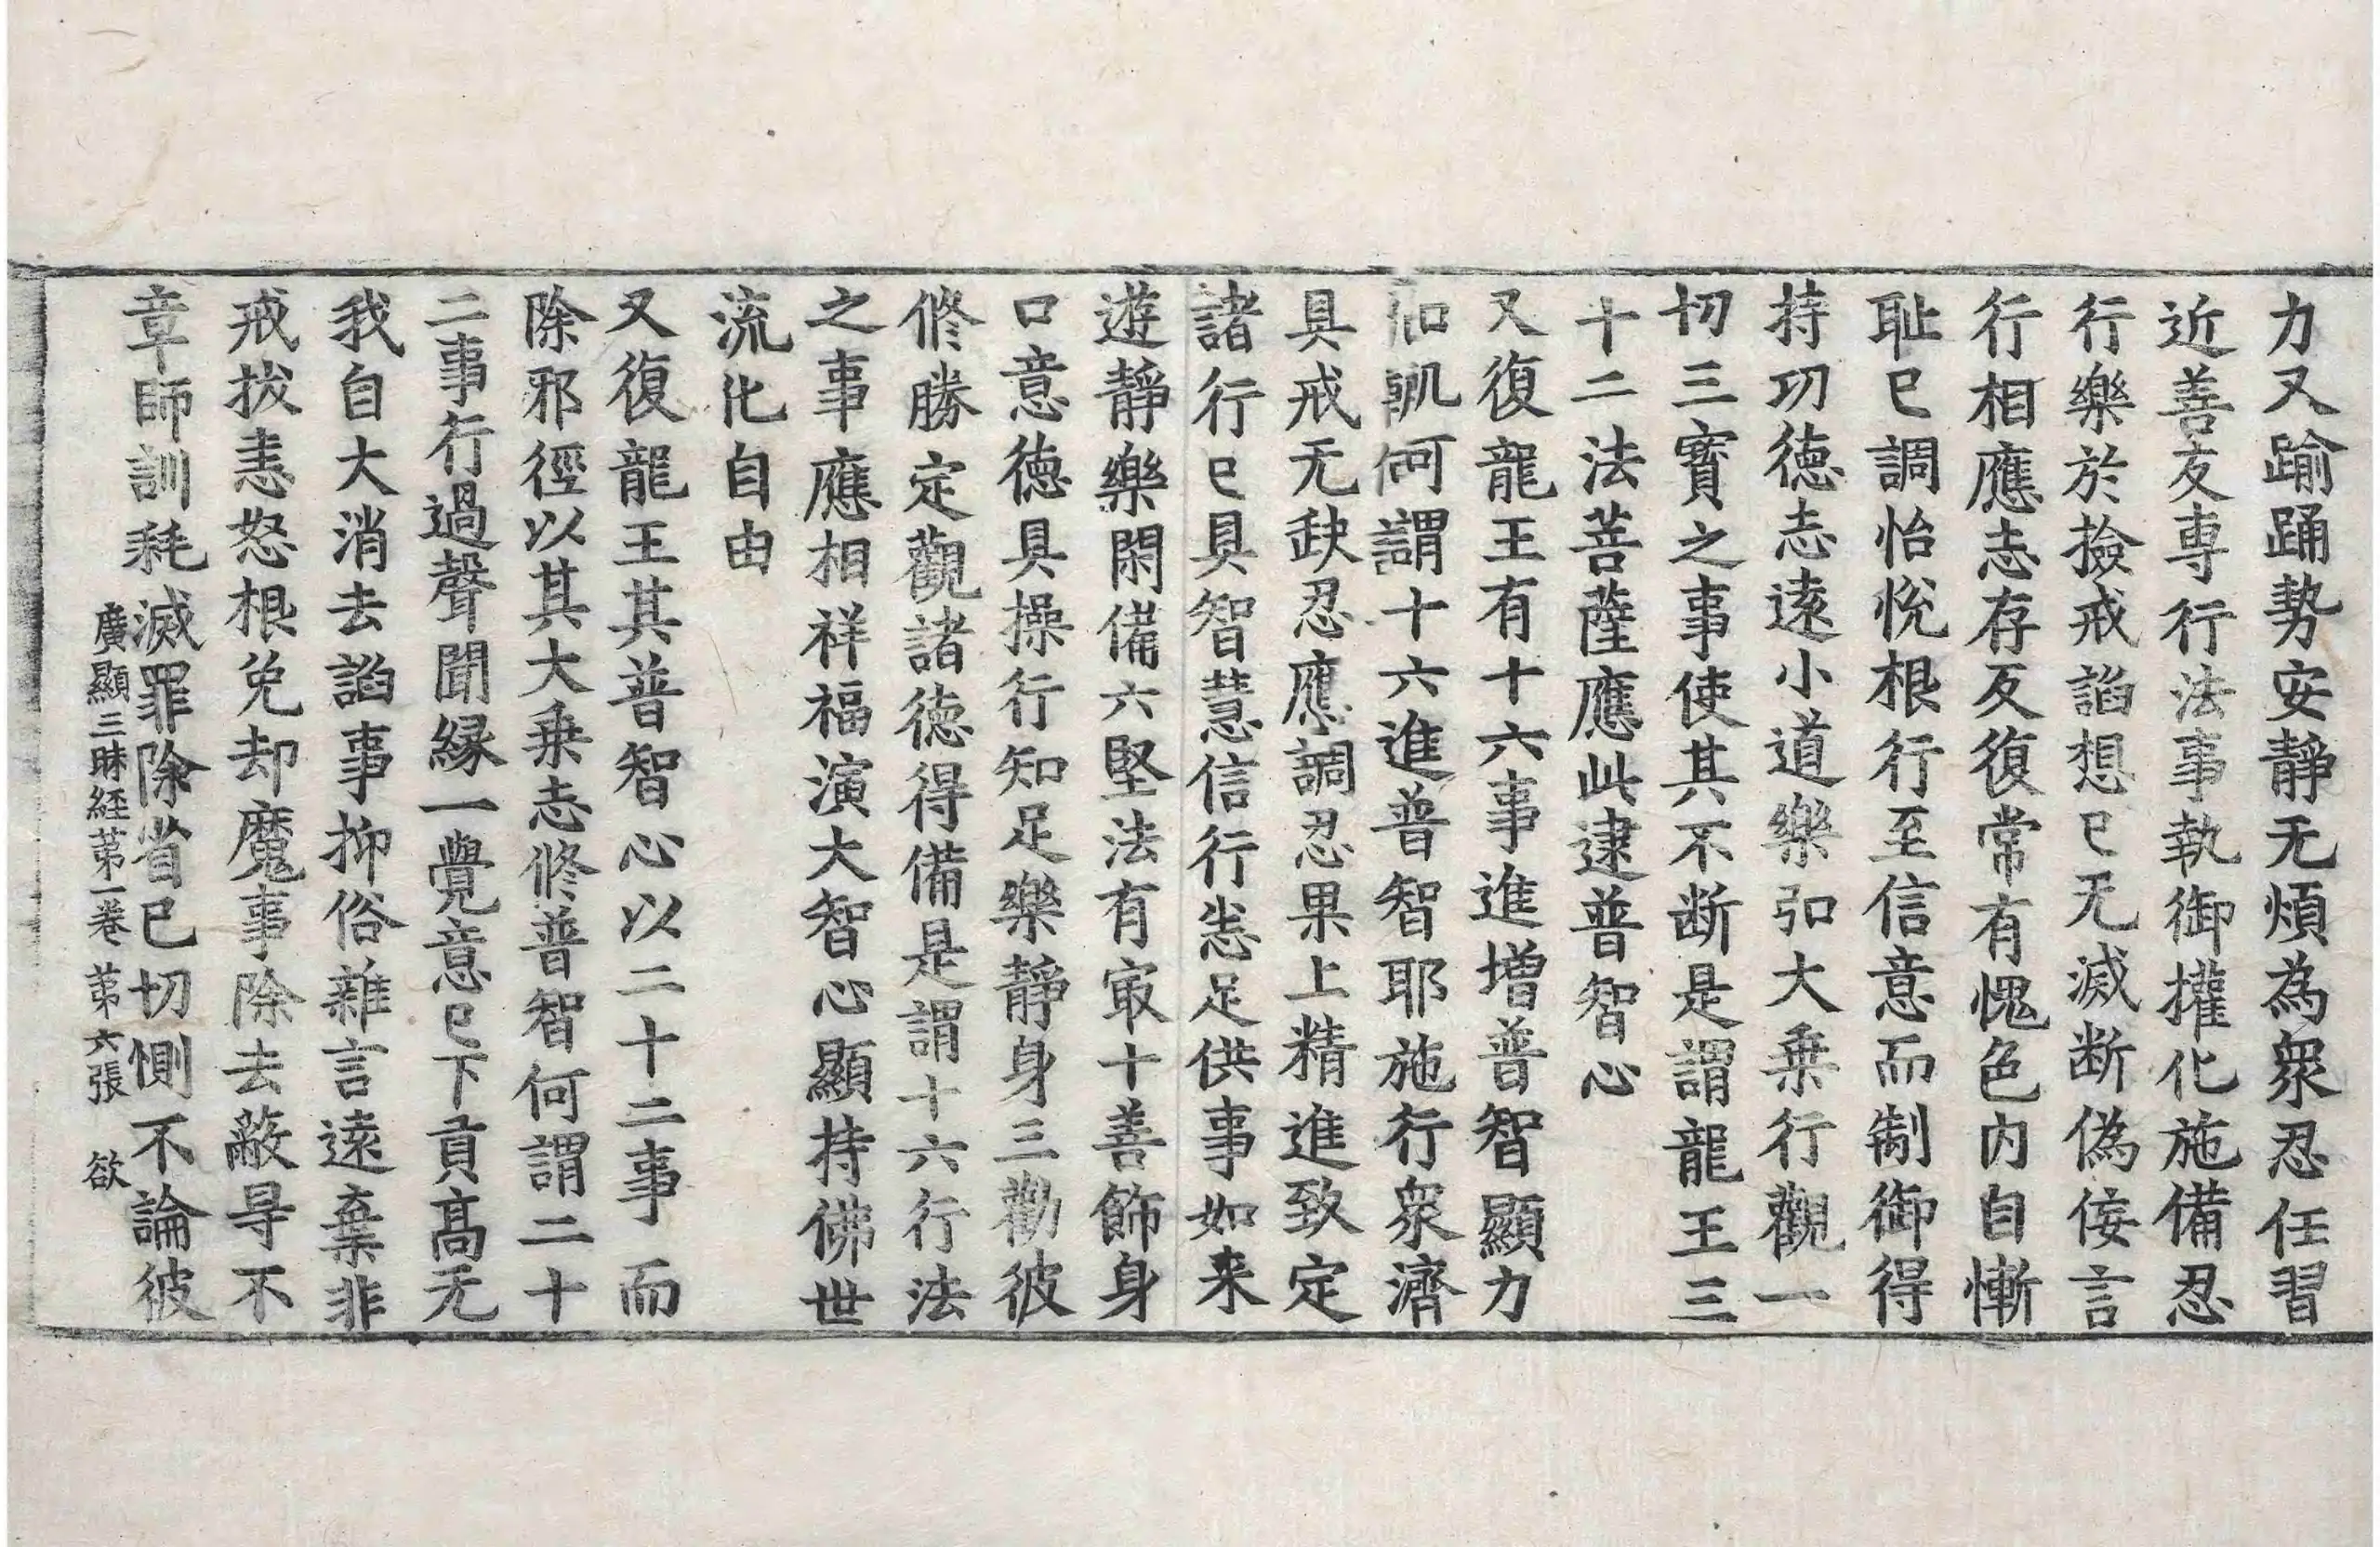 力又踰踊勢安靜无煩為衆忍任習
近善友專行法事執御攉化施備忍
行樂於撿戒諂想已无滅断偽侫言
行相應志存反復常有愧色內自慚
耻已調怡悅根行至信意而制御得
持功德志遠小道樂弘大乗行觀一
切三寶之事使其不断是謂龍王三
十二法菩薩應此逮普智心
又復龍王有十六事進增普智顯力
何謂十六進普智耶施行衆濟
具戒无缺忍應調忍果上精進致定
諸行已具智慧信行恙足供事如来
遊靜樂閑備六堅法有㝡十善飾身
口意德具操行知足樂靜身三勸彼
修勝定觀諸德得備是謂十六行法
之事應相祥福演大智心顯持佛世
流化自由
又復龍王其普智心以二十二事而
除邪徑以其大乗志修普智何謂二十
二事行過聲聞縁一覺意已下貢髙无
我自大消去諂事抑俗雜言遠棄非
戒拔恚怒根免却魔事除去蔽㝵不
章師訓耗滅罪除省已切惻不論彼
廣顯三昧経苐一卷 苐六張 欲